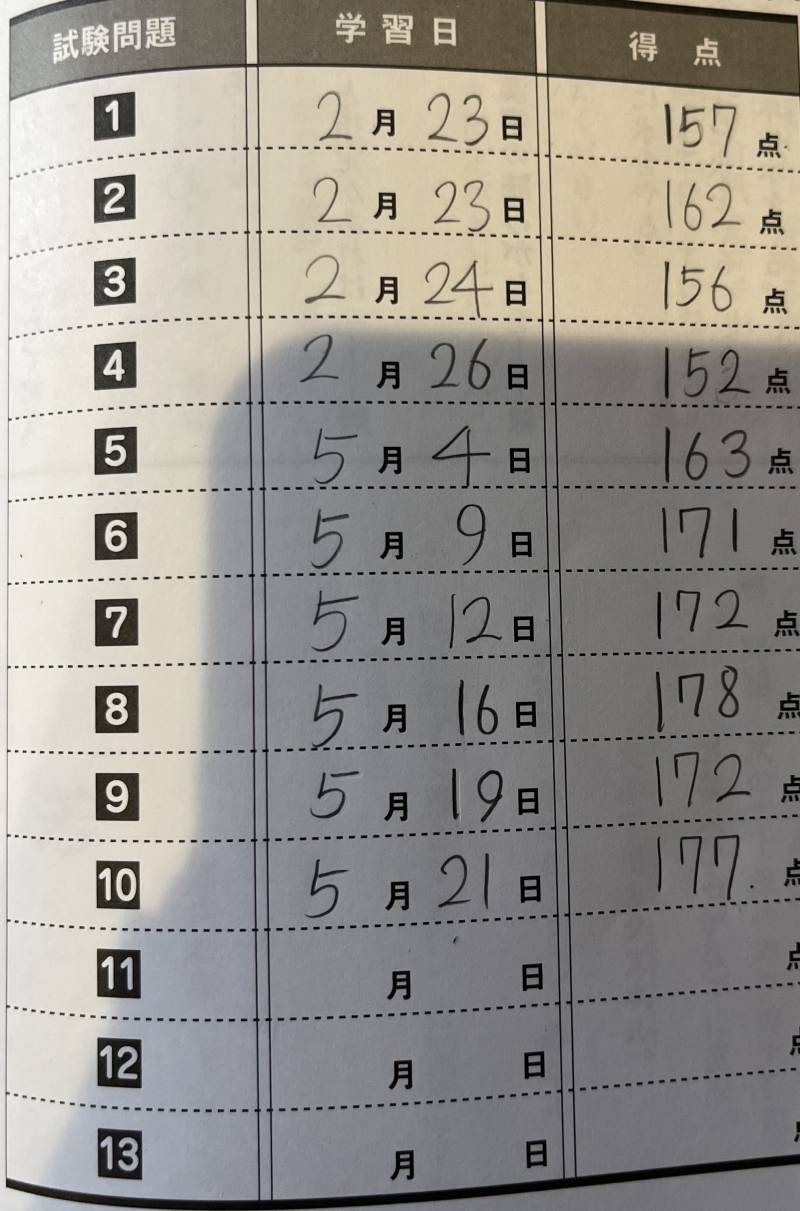 試験問題 学習日 得点
1 2月23日 157点
2 2月23日 162点
3 2月24日 156点
4 2月26日 152点
5 5月4日 163点
6 5月9日 171点
7 5月12日 172点
8 5月16日 178点
9 5月19日 172点
10 5月21日 177点
11 月 日 点
12 月 日 点
13 月 日 点